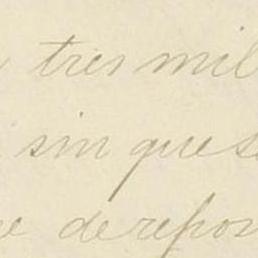 tres mil
sin que s
de repos